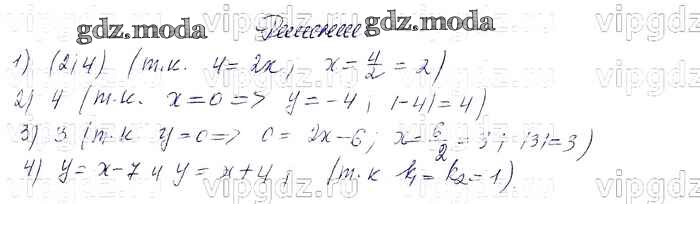 gdz.moda Решение gdz.moda
1) (2;4) (т.к. 4=2x; x=4/2=2)
2) 4 (т.к. x=0=> y=-4, |-4|=4)
3) 3 (т.к y=0=> 0=2x-6; x=6/2=3; |3|=3)
4) y=x-7 и y=x+4, (т.к k₁=k₂=1).
vipgdz.ru vipgdz.ru vipgdz.ru